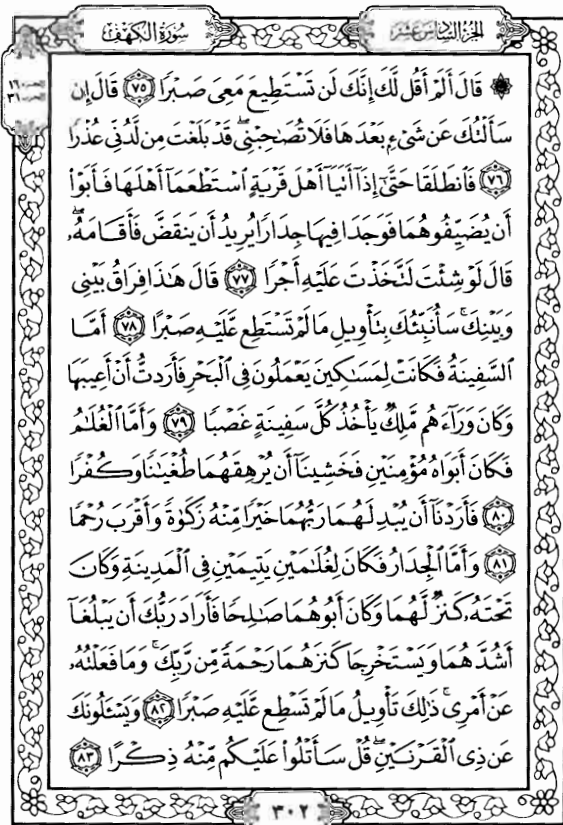 الجزء السادس عشر
سورة الكهف
۞ قَالَ أَلَمْ أَقُل لَّكَ إِنَّكَ لَن تَسْتَطِيعَ مَعِيَ صَبْرًا ٧٥ قَالَ إِن
سَأَلْتُكَ عَن شَيْءٍۭ بَعْدَهَا فَلَا تُصَٰحِبْنِي ۖ قَدْ بَلَغْتَ مِن لَّدُنِّي عُذْرًا
٧٦ فَٱنطَلَقَا حَتَّىٰٓ إِذَآ أَتَيَآ أَهْلَ قَرْيَةٍ ٱسْتَطْعَمَآ أَهْلَهَا فَأَبَوْا۟
أَن يُضَيِّفُوهُمَا فَوَجَدَا فِيهَا جِدَارًا يُرِيدُ أَن يَنقَضَّ فَأَقَامَهُۥ ۖ
قَالَ لَوْ شِئْتَ لَتَّخَذْتَ عَلَيْهِ أَجْرًا ٧٧ قَالَ هَٰذَا فِرَاقُ بَيْنِي
وَبَيْنِكَ ۚ سَأُنَبِّئُكَ بِتَأْوِيلِ مَا لَمْ تَسْتَطِع عَّلَيْهِ صَبْرًا ٧٨ أَمَّا
ٱلسَّفِينَةُ فَكَانَتْ لِمَسَٰكِينَ يَعْمَلُونَ فِي ٱلْبَحْرِ فَأَرَدتُّ أَنْ أَعِيبَهَا
وَكَانَ وَرَآءَهُم مَّلِكٌ يَأْخُذُ كُلَّ سَفِينَةٍ غَصْبًا ٧٩ وَأَمَّا ٱلْغُلَٰمُ
فَكَانَ أَبَوَاهُ مُؤْمِنَيْنِ فَخَشِينَآ أَن يُرْهِقَهُمَا طُغْيَٰنًا وَكُفْرًا
٨٠ فَأَرَدْنَآ أَن يُبْدِلَهُمَا رَبُّهُمَا خَيْرًا مِّنْهُ زَكَوٰةً وَأَقْرَبَ رُحْمًا
٨١ وَأَمَّا ٱلْجِدَارُ فَكَانَ لِغُلَٰمَيْنِ يَتِيمَيْنِ فِي ٱلْمَدِينَةِ وَكَانَ
تَحْتَهُۥ كَنزٌ لَّهُمَا وَكَانَ أَبُوهُمَا صَٰلِحًا فَأَرَادَ رَبُّكَ أَن يَبْلُغَآ
أَشُدَّهُمَا وَيَسْتَخْرِجَا كَنزَهُمَا رَحْمَةً مِّن رَّبِّكَ ۚ وَمَا فَعَلْتُهُۥ
عَنْ أَمْرِي ۚ ذَٰلِكَ تَأْوِيلُ مَا لَمْ تَسْطِع عَّلَيْهِ صَبْرًا ٨٢ وَيَسْـَٔلُونَكَ
عَن ذِي ٱلْقَرْنَيْنِ ۖ قُلْ سَأَتْلُوا۟ عَلَيْكُم مِّنْهُ ذِكْرًا ٨٣
٣٠٢